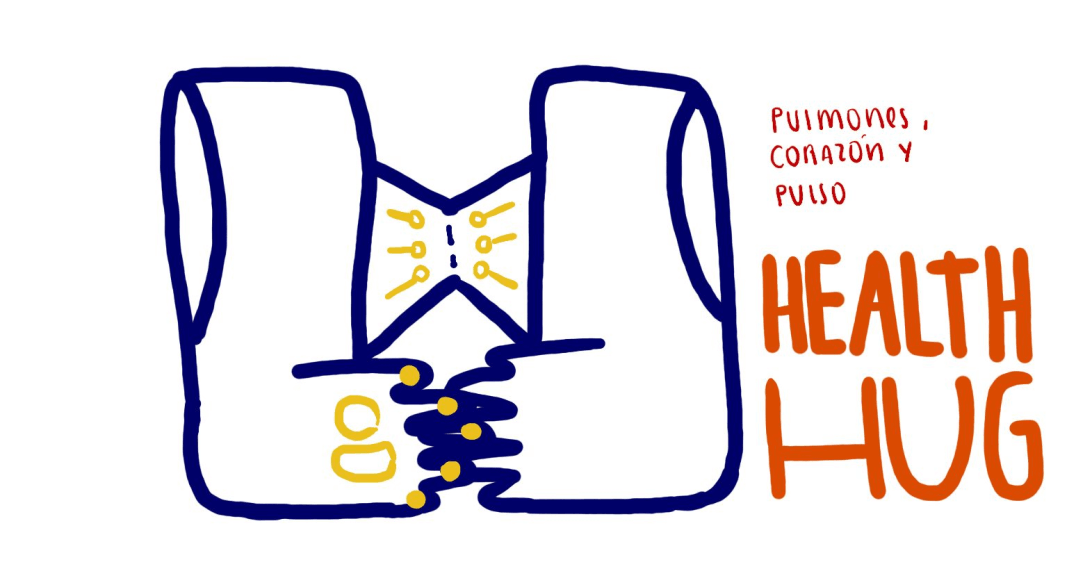 PUlMONes,
CORAZÓN Y
PUlSO
HEALTH
HUG